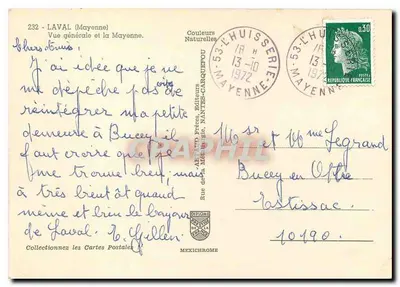 232 - LAVAL (Mayenne)
Vue générale et la Mayenne.
Couleurs
Naturelles
Chers amis :
J'ai idée que je ne
me dépêche pas de
réintégrer ma petite
demeure à Bucey, il
faut croire que j
me trouve bien, mais
à très bientôt quand
même et bien le bonjour
de Laval.
Collectionnez les Cartes Postales
MEXICHROME
Rue de la Métallurgie, NANTES-CARQUEFOU
53 - L'HUISSERIE
18 H
13-10
1972
MAYENNE
53 - L'HUISSERIE
18
13
1972
MAYENNE
0,30
POSTES
Msr et Mme Legrand
Bucey en Othe
Estissac
10190.